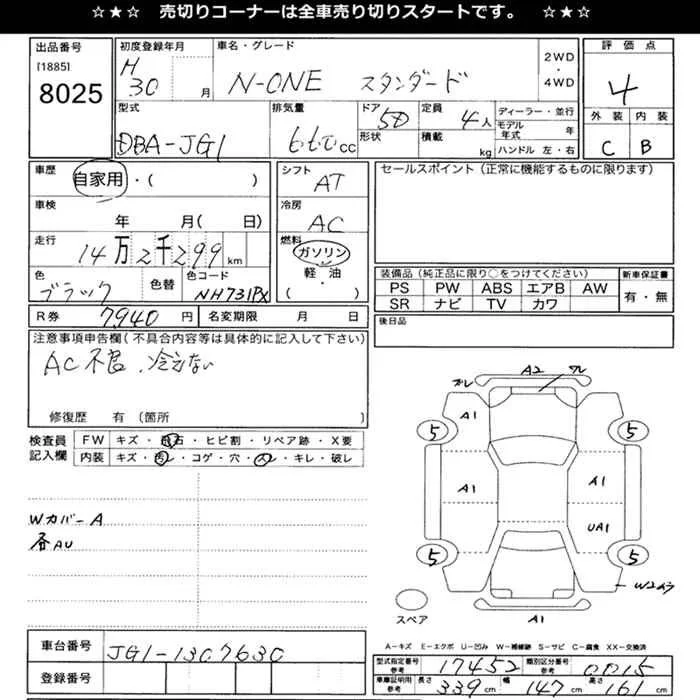 ☆★☆ 売切りコーナーは全車売り切りスタートです。 ☆★☆
出品番号
[1885]
8025
初度登録年月
H
30 月
車名・グレード
N-ONE スタンダード
2WD
・
4WD
評価点
4
外装 内装
C B
型式
DBA-JG1
排気量
660cc
ドア 5D
形状
定員 4人
積載 kg
ディーラー・並行
モデル
年式 年
ハンドル 左・右
車歴 自家用・( )
シフト AT
車検 年 月( 日)
冷房 AC
走行 14万2千299 km
燃料 ガソリン
軽・油
( ・ )
色 ブラック 色替 色コード NH731PX
R券 7940円 名変期限 月 日
セールスポイント(正常に機能するものに限ります)
装備品(純正品に限り○をつけてください) 新車保証書
PS PW ABS エアB AW
SR ナビ TV カワ
有・無
後日品
注意事項申告欄(不具合内容等は具体的に記入して下さい)
AC不良、冷えない
修復歴 有(箇所 )
検査員
記入欄
FW キズ・飛石・ヒビ割・リペア跡・X要
内装 キズ・汚レ・コゲ・穴・スレ・キレ・破レ
WカバーA
各AU
A2
A1
5 5
A1 A1
UA1
5 5
A1
スペア
車台番号 JG1-1307630
登録番号
A-キズ E-エクボ U-凹み W-補修跡 S-サビ C-腐食 XX-交換済
型式指定番号
参考 17452
類別区分番号
参考 0015
車庫証明用
参考 長さ 339cm 幅 147cm 高さ 161cm